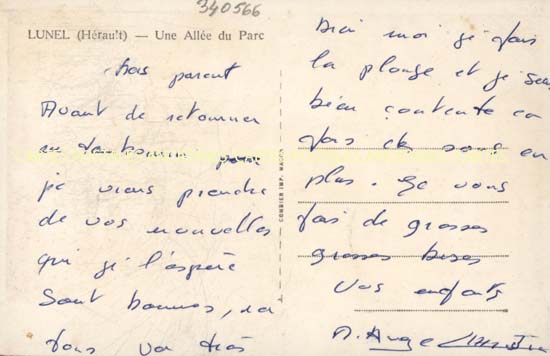 340566
LUNEL (Hérault) — Une Allée du Parc
chers parent
Avant de retourner
je viens prendre
de vos nouvelles
qui je l'espère
sont bonnes, ici
tous va très
COMBIER IMP. MACON
bien moi je fais
la plonge et je suis
bien contente
fais des sous en
plus. Je vous
fais de grosses
grosses bises
Vos enfants
M. Ange